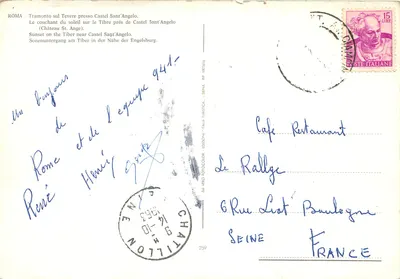 ROMA
Tramonto sul Tevere presso Castel Sant'Angelo
Le couchant du soleil sur le Tibre près de Castel Sant'Angelo
(Château St. Ange).
Sunset on the Tiber near Castel Sant'Angelo
Sonnenuntergang am Tiber in der Nähe der Engelsburg.
15
POSTE ITALIANE
Un bonjour
de
Rome et de l'équipe 941-
René Henri
Café Restaurant
Le Rallye
6 Rue List Boulogne
SEINE
FRANCE
CHATILLON
9 H
14-10
1963
SEINE